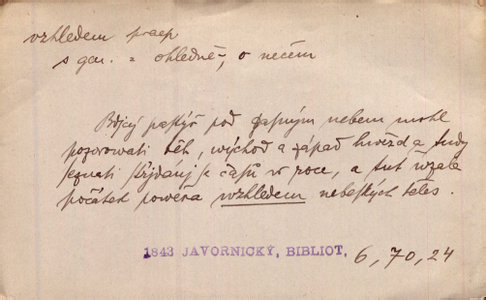 vzhledem praep
s gen. = ohledně, o něčem
Bdjcý pastýř pod gasným nebem mohl
pozorowati běh, wýchod a západ hwězd a tudy
seznati střjdánj se časů w roce, a tut wzala
počátek powěra wzhledem nebeských těles.
1843 JAVORNICKÝ, BIBLIOT, 6, 70, 24